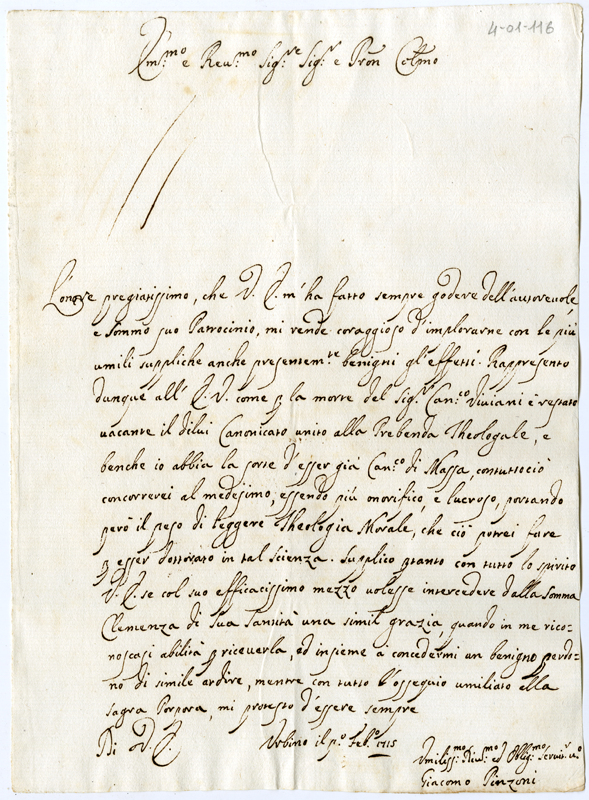 4-01-116
Em.mo e Reu.mo Sig.re Sig.r e Pron Colmo
L'onore pregiatissimo, che V. E. m'ha fatto sempre godere dell'autoreuole,
e sommo suo Patrocinio, mi rende coraggioso d'implorarne con le più
umili suppliche anche presentem.te benigni gl'effetti. Rappresento
dunque all'E. V. come p la morte del Sig.r Can.co Viuiani è restato
uacante il dilui Canonicato unito alla Prebenda Theologale, e
benche io abbia la sorte d'esser già Can.co di Massa, contuttociò
concorrerei al medesimo, essendo più onorifico, e lucroso, portando
però il peso di leggere Theologia Morale, che ciò potrei fare
p esser dottorato in tal scienza. Supplico ptanto con tutto lo spirito
V. E. se col suo efficacissimo mezzo uolesse intercedere dalla somma
Clemenza di Sua Santità una simil grazia, quando in me rico-
noscasi abilità p riceuerla, ed insieme à concedermi un benigno perdo-
no di simile ardire, mentre con tutto l'ossequio umiliato alla
sagra Porpora, mi protesto d'essere sempre
Di V. E.
Urbino il p.o Feb.o 1715
Umiliss.mo Diu.mo ed Oblig.mo Seruit.r u.o
Giacomo Pinzoni